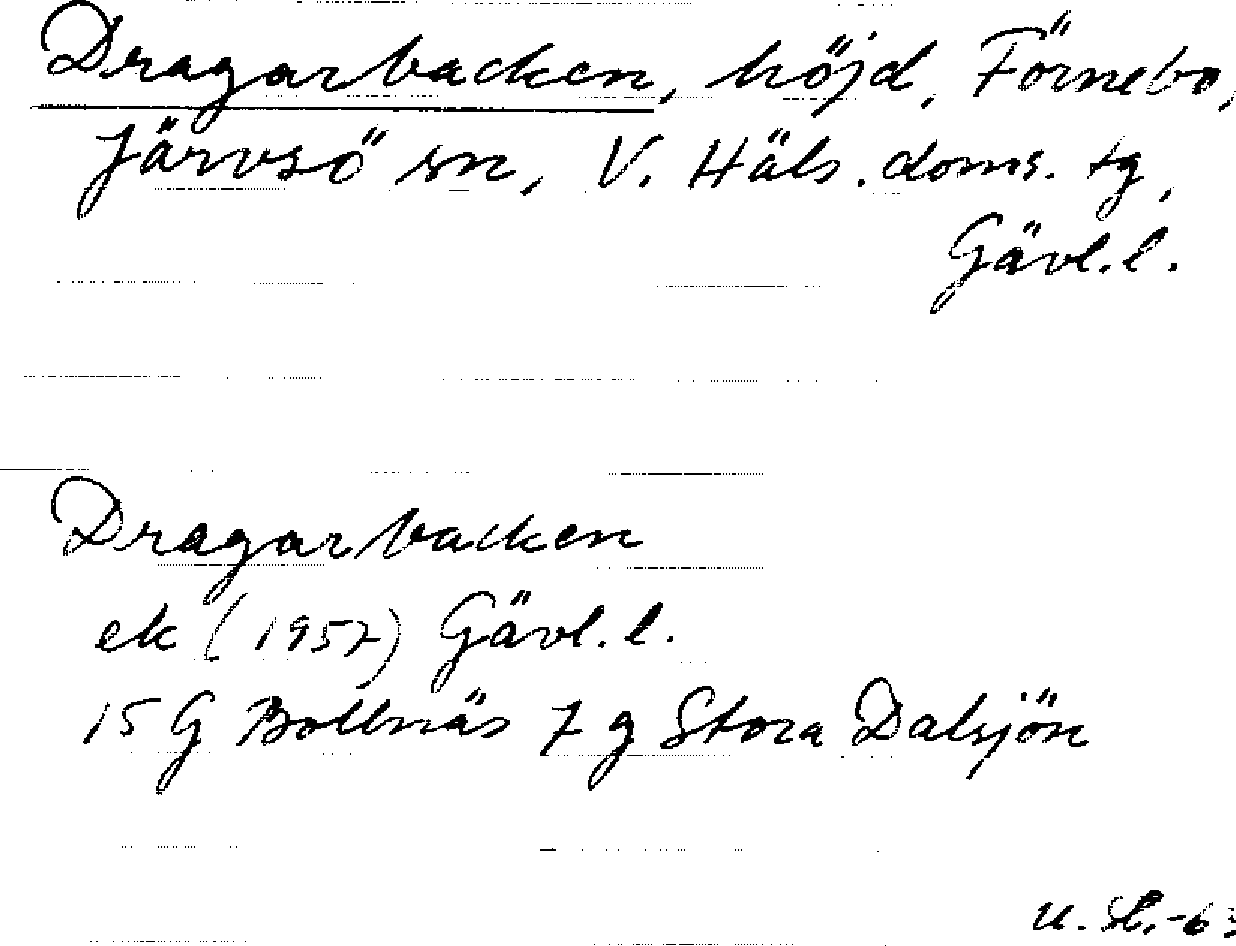 Dragarbacken, höjd, Förnebo,
Järvsö sn, V. Häls. doms. tg,
Gävl. l.
Dragarbacken
ek (1957) Gävl. l.
15 G Bollnäs 7 g Stora Dalsjön